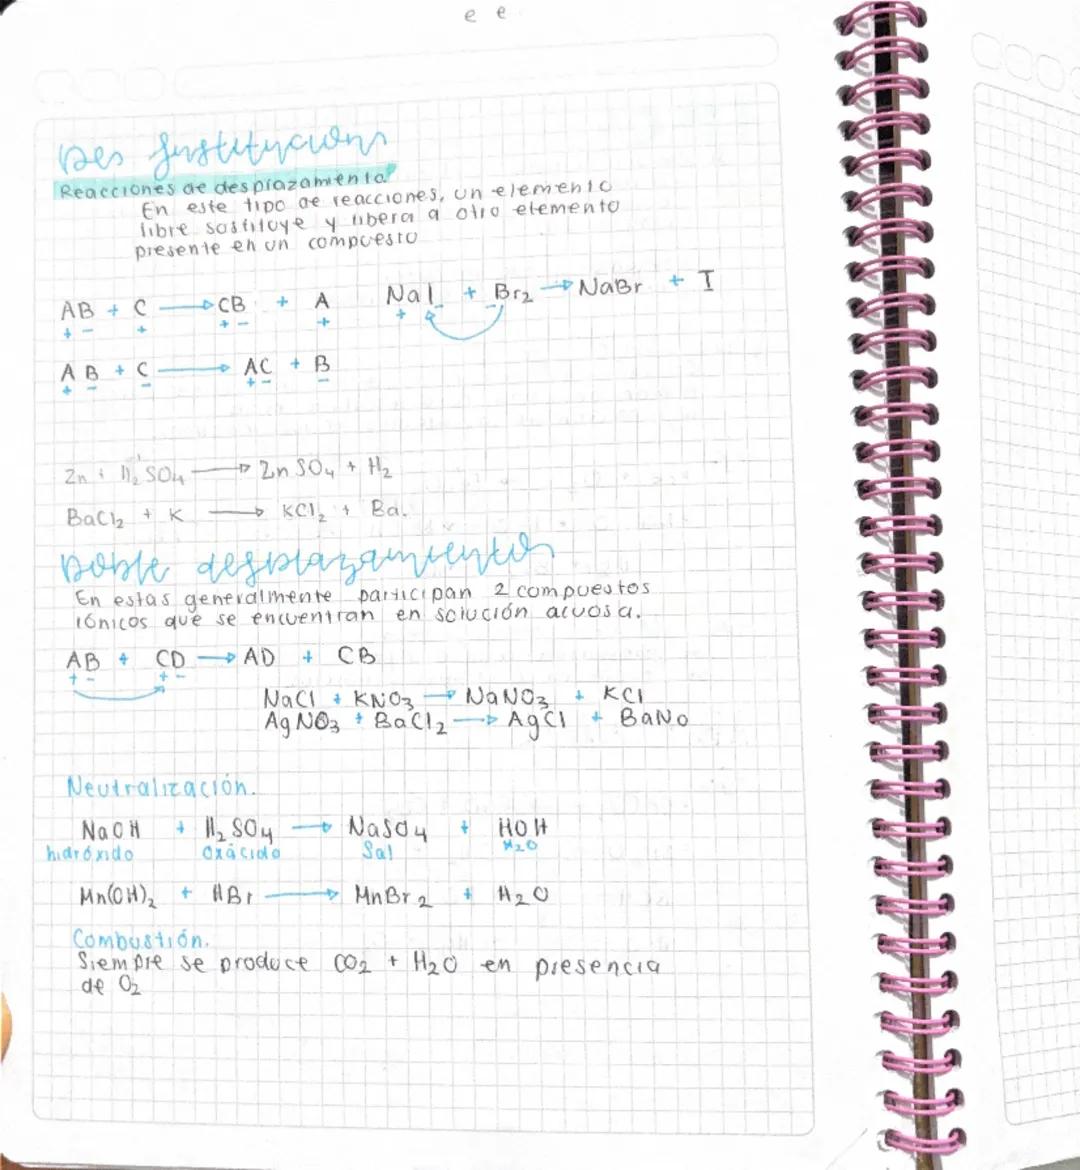 e e
Des sustitucions
Reacciones de desplazamiento.
En este tipo de reacciones, un elemento
libre sostituye y libera a otro elemento
presente en un compuesto
AB + C → CB + A
+ - + + - +
NaI + Br2 → NaBr + I
+ -
AB + C → AC + B
+ - - + - -
Zn + H2SO4 → ZnSO4 + H2
BaCl2 + K → KCl2 + Ba.
Doble desplazamiento
En estas generalmente participan 2 compuestos
iónicos que se encuentran en solución acuosa.
AB + CD → AD + CB
+ - + -
NaCl + KNO3 → NaNO3 + KCl
AgNO3 + BaCl2 → AgCl + BaNo
Neutralización.
NaOH + H2SO4 → NaSO4 + HOH
hidróxido Oxácido Sal H2O
Mn(OH)2 + HBr → MnBr2 + H2O
Combustión.
Siempre se produce CO2 + H2O en presencia
de O2